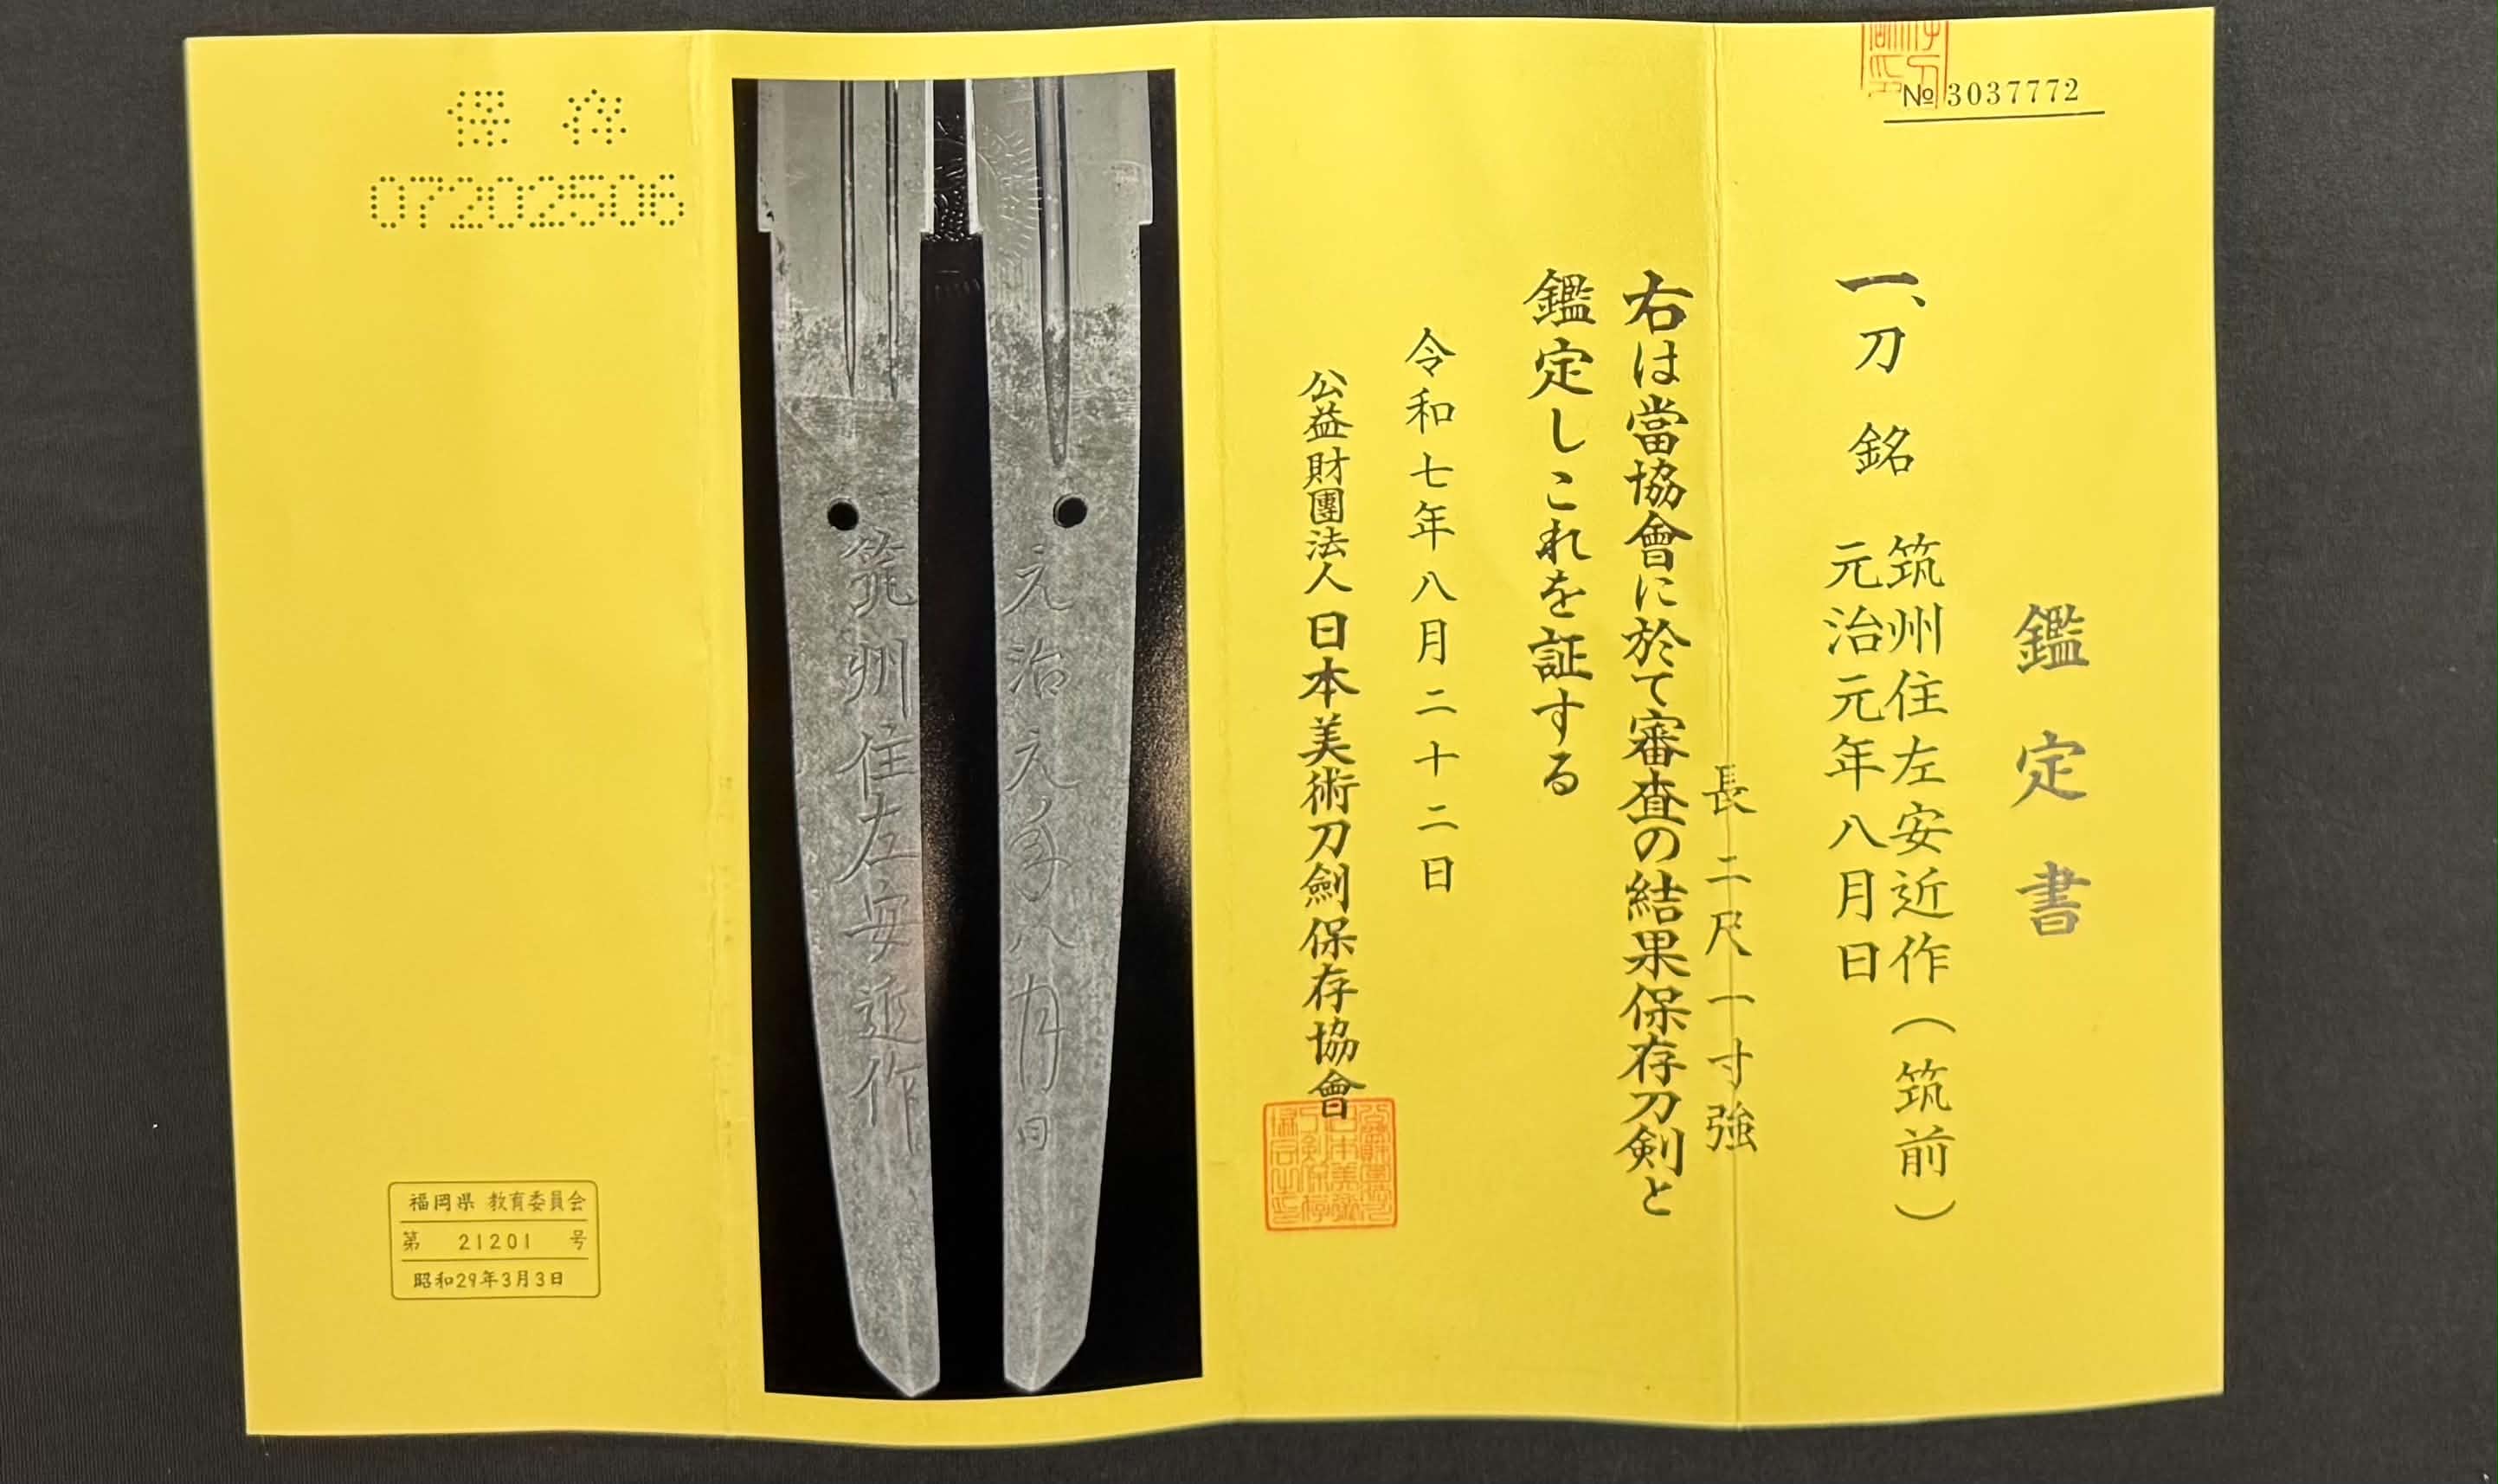 №3037772
鑑定書
一、刀 銘 筑州住左安近作(筑前)
元治元年八月日
長二尺一寸強
右は當協會に於て審査の結果保存刀剣と
鑑定しこれを証する
令和七年八月二十二日
公益財團法人日本美術刀劍保存協會
元治元年八月日
筑州住左安近作
保存
07202506
福岡県 教育委員会
第 21201 号
昭和29年3月3日